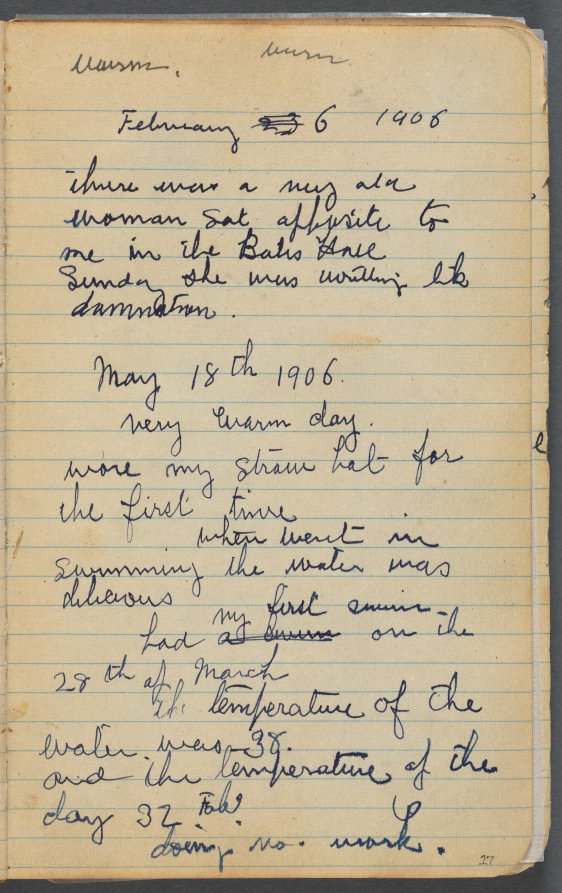 warm. warm
February 6 1906
there was a very old
woman sat opposite to
me in the Bates Hall
Sunday she was writting lik
damnation.
May 18th 1906.
very warm day.
wore my straw hat for
the first time
when went in
swimming the water was
delicious
my first swim
had a swim on the
28th of March
the temperature of the
water was 38.
and the temperature of the
day 32 Fah?
doing no work.
27